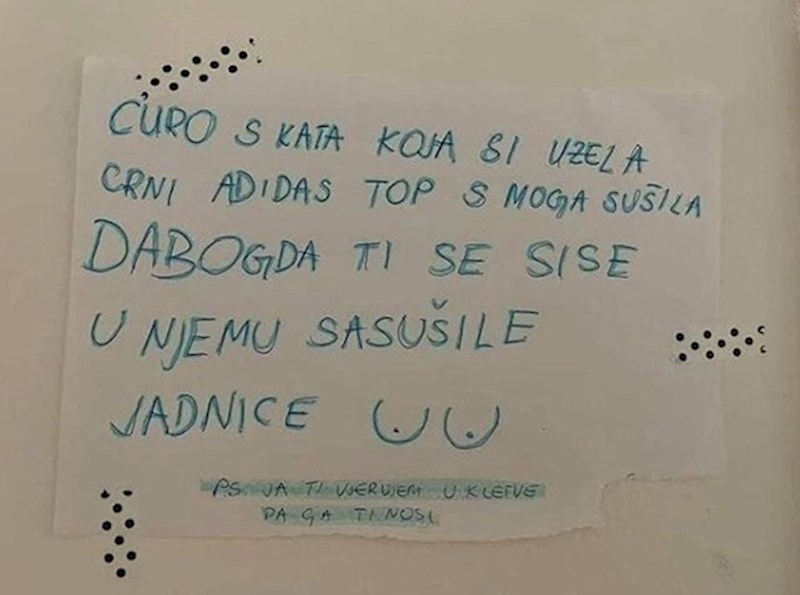 ĆURO S KATA KOJA SI UZELA
CRNI ADIDAS TOP S MOGA SUŠILA
DABOGDA TI SE SISE
U NJEMU SASUŠILE
JADNICE
PS. JA TI VJERUJEM U KLETVE
PA GA TI NOSI